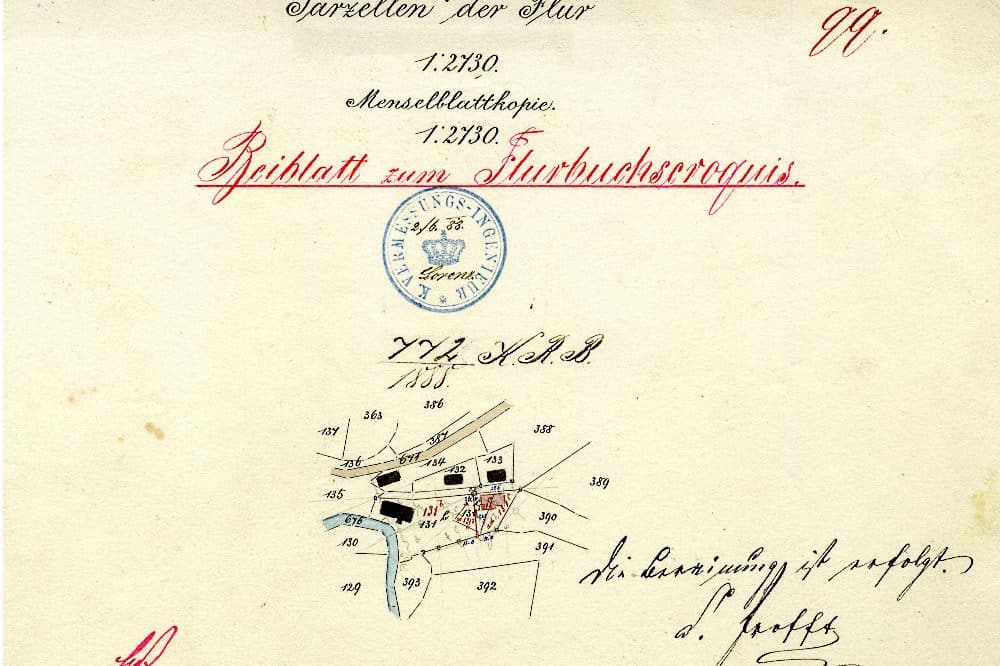 Parzellen der Flur
99.
1:2730.
Menselblattkopie.
1:2730.
Beiblatt zum Flurbuchscroquis.
K. VERMESSUNGS-INGENIEUR
2/6. 88.
Lorenz
772 K.R.B.
1888.
386
363
137
387
388
136
677
134
132
133
389
135
131
131
676
390
130
391
129
393
392
Die Berainung ist erfolgt.